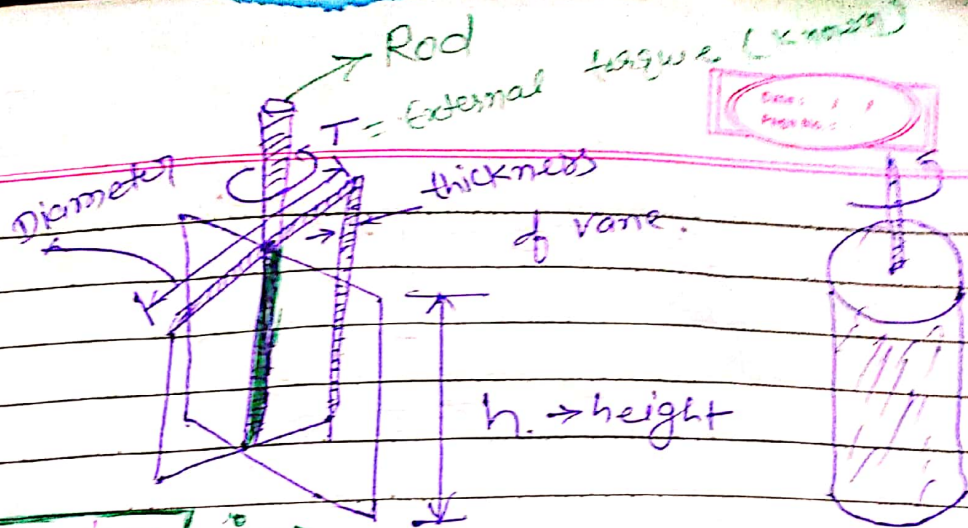 Rod
T = External torque (known)
Diameter
thickness
of vane.
h. → height